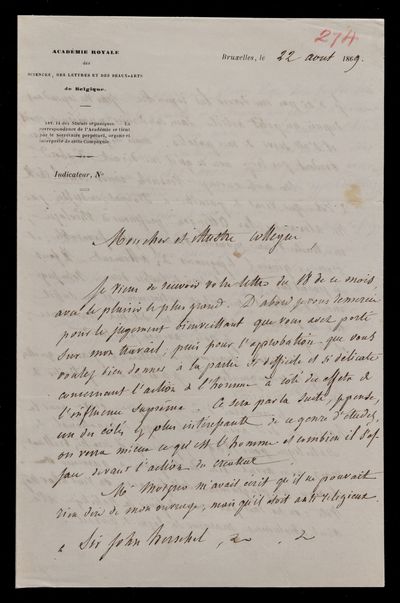 274
ACADÉMIE ROYALE
des
SCIENCES, DES LETTRES ET DES BEAUX-ARTS
de Belgique.
Bruxelles, le 22 aout 1869.
ART. 14 des Statuts organiques. — La
correspondance de l'Académie se tient
par le Secrétaire perpétuel, organe et
interprète de cette Compagnie.
Indicateur, No
Mon cher et illustre collègue
Je viens de recevoir votre lettre du 18 de ce mois
avec le plaisir le plus grand. D'abord je vous remercie
pour le jugement bienveillant que vous avez porté
sur mon travail; puis pour l'approbation que vous
voulez bien donner à la partie si difficile et si délicate
concernant l'action de l'homme à coté des effets de
l'influence suprème. Ce sera par la suite, je pense,
un des cotés les plus intéressants de ce genre d'études,
on verra mieux ce qu'est l'homme et combien il s'efface
devant l'action du créateur.
Mr Moigno m'avait écrit qu'il ne pouvait
rien dire de mon ouvrage, mais qu'il était anti religieux.
a Sir John Herschel